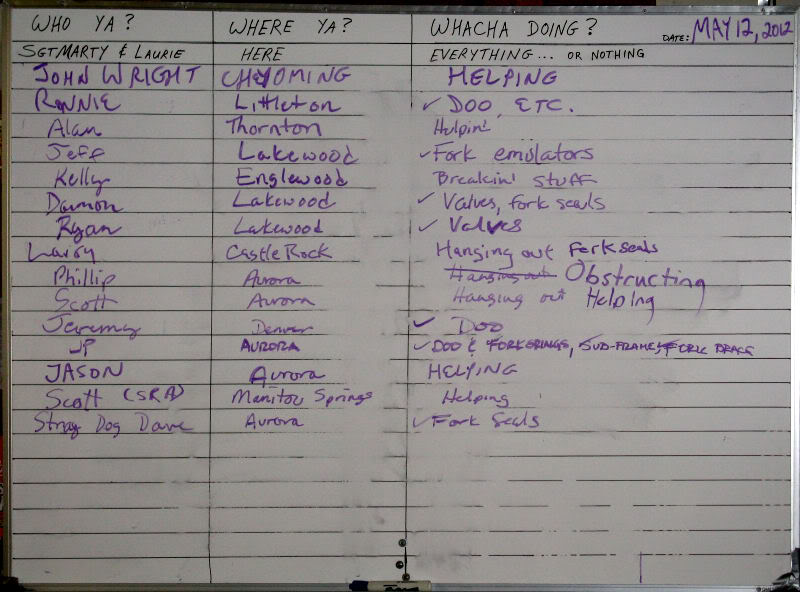 WHO YA? WHERE YA? WHACHA DOING? DATE: MAY 12, 2012
SGT MARTY & LAURIE HERE EVERYTHING... OR NOTHING
JOHN WRIGHT CHYOMING HELPING
RONNIE Littleton ✓ DOO, ETC.
Alan Thornton Helpin'
Jeff Lakewood ✓ Fork emulators
Kelly Englewood Breakin' stuff
Damon Lakewood ✓ Valves, fork seals
Ryan Lakewood ✓ Valves
Larry Castle Rock Hanging out Fork seals
Phillip Aurora Hanging out Obstructing
Scott Aurora Hanging out Helping
Jeremy Denver ✓ DOO
JP AURORA ✓ DOO & FORK SPRINGS, SUB-FRAME, FORK BRACE
JASON Aurora HELPING
Scott (SRA) Manitou Springs Helping
Stray Dog Dave Aurora ✓ Fork Seals